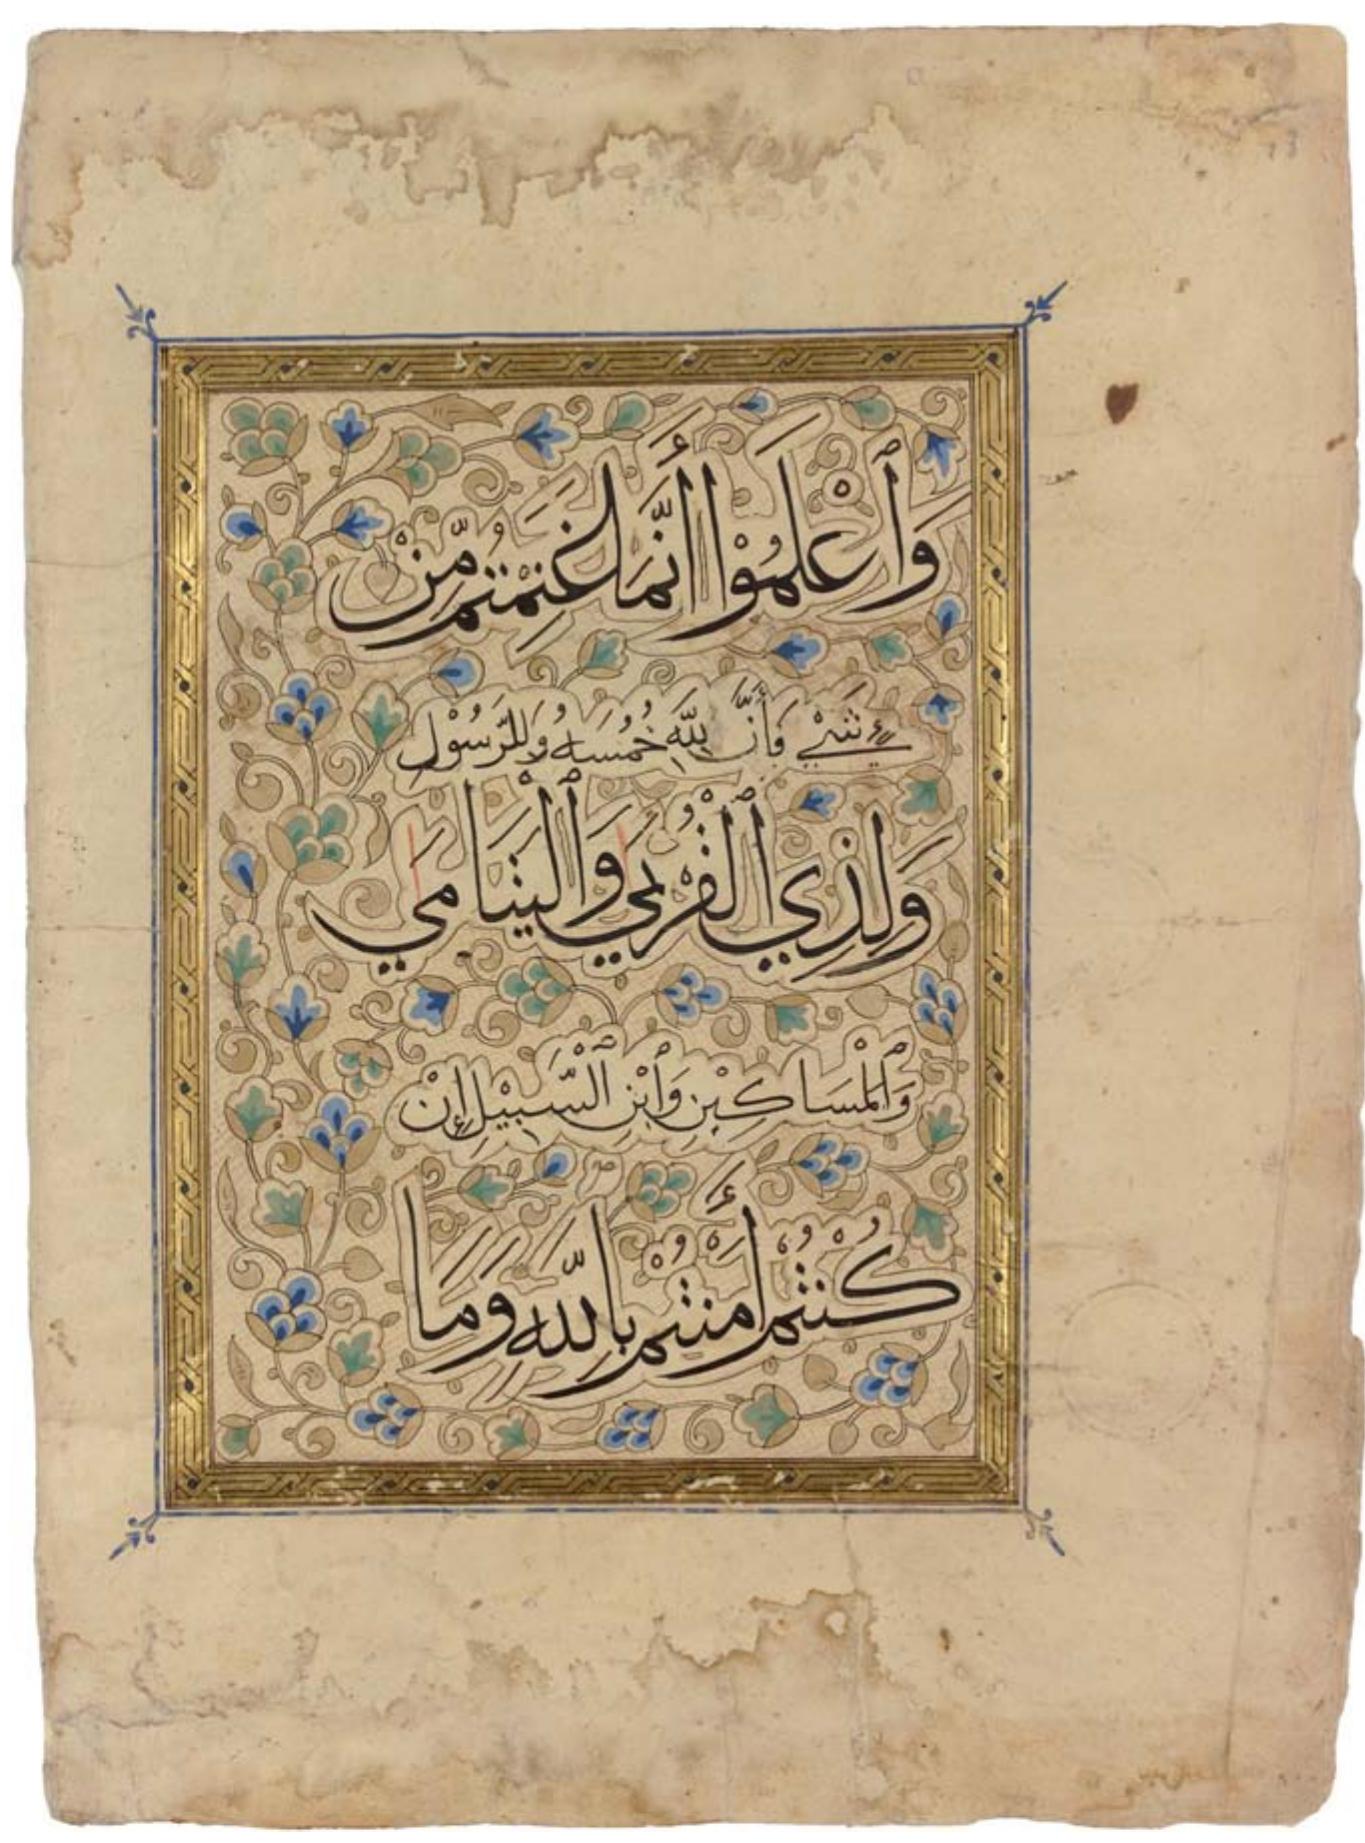 وَٱعْلَمُوْا أَنَّمَا غَنِمْتُمْ مِّنْ
شَيْءٍ فَأَنَّ لِلّٰهِ خُمُسَهُ وَلِلرَّسُوْلِ
وَلِذِي ٱلْقُرْبٰي وَٱلْيَتَامٰي
وَٱلْمَسَاكِيْنِ وَٱبْنِ ٱلسَّبِيْلِ إِنْ
كُنْتُمْ أَمَنْتُمْ بِاللّٰهِ وَمَا